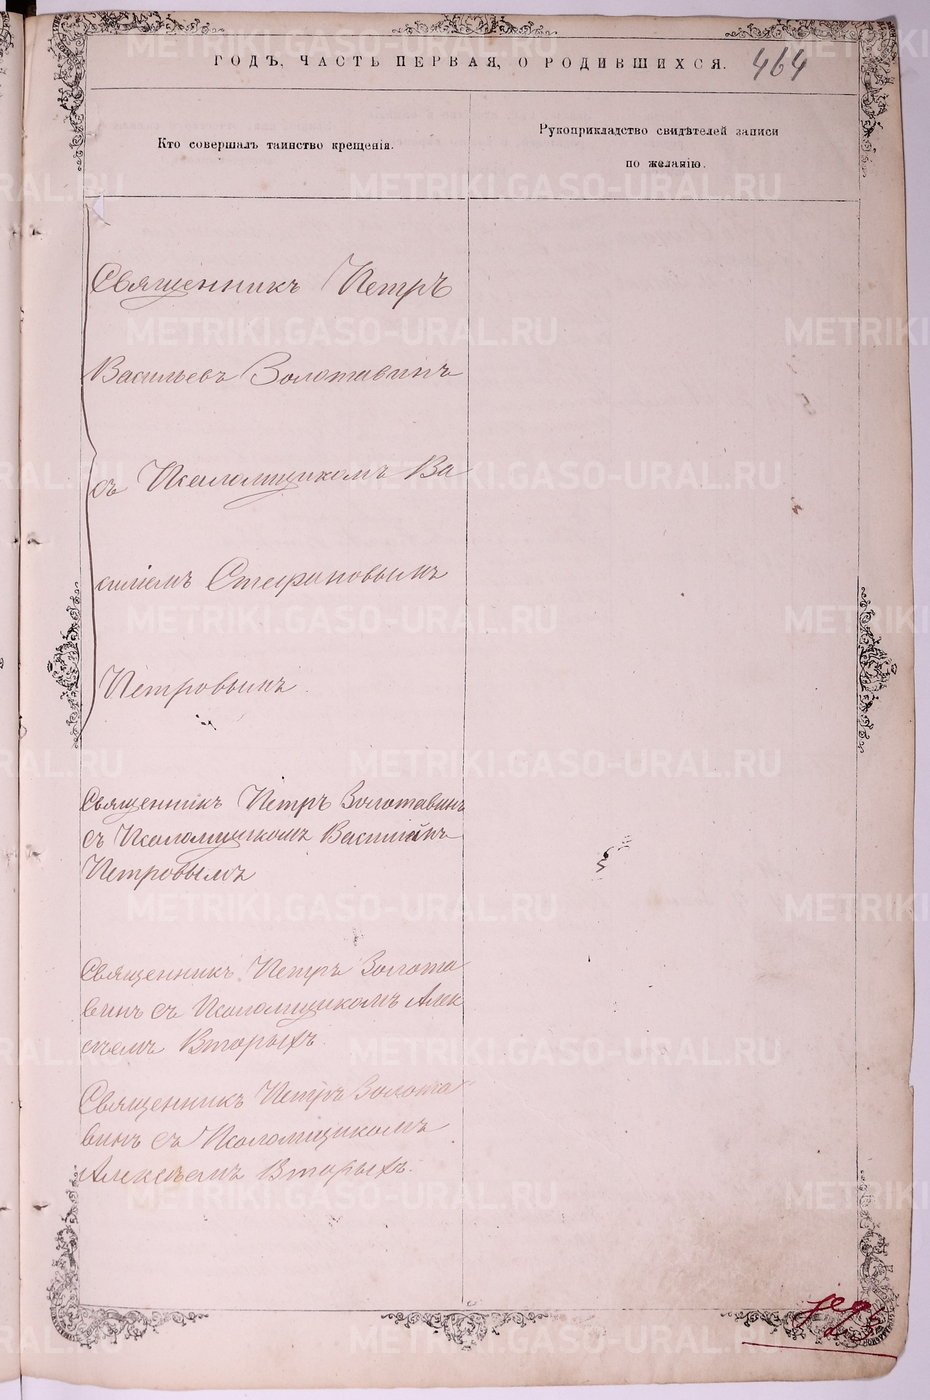 ГОДЪ, ЧАСТЬ ПЕРВАЯ, О РОДИВШИХСЯ. 464
Кто совершалъ таинство крещенія.
Рукоприкладство свидѣтелей записи
по желанію.
Священникъ Петръ
Васильевъ Золотавинъ
съ Псаломщикомъ Ва
силіемъ Стефановымъ
Петровымъ
Священникъ Петръ Золотавинъ
съ Псаломщикомъ Василіемъ
Петровымъ
Священникъ Петръ Золота
винъ съ Псаломщикомъ Алек
сѣемъ Вторыхъ.
Священникъ Петръ Золота
винъ съ Псаломщикомъ
Алексѣемъ Вторыхъ.
METRIKI.GASO-URAL.RU